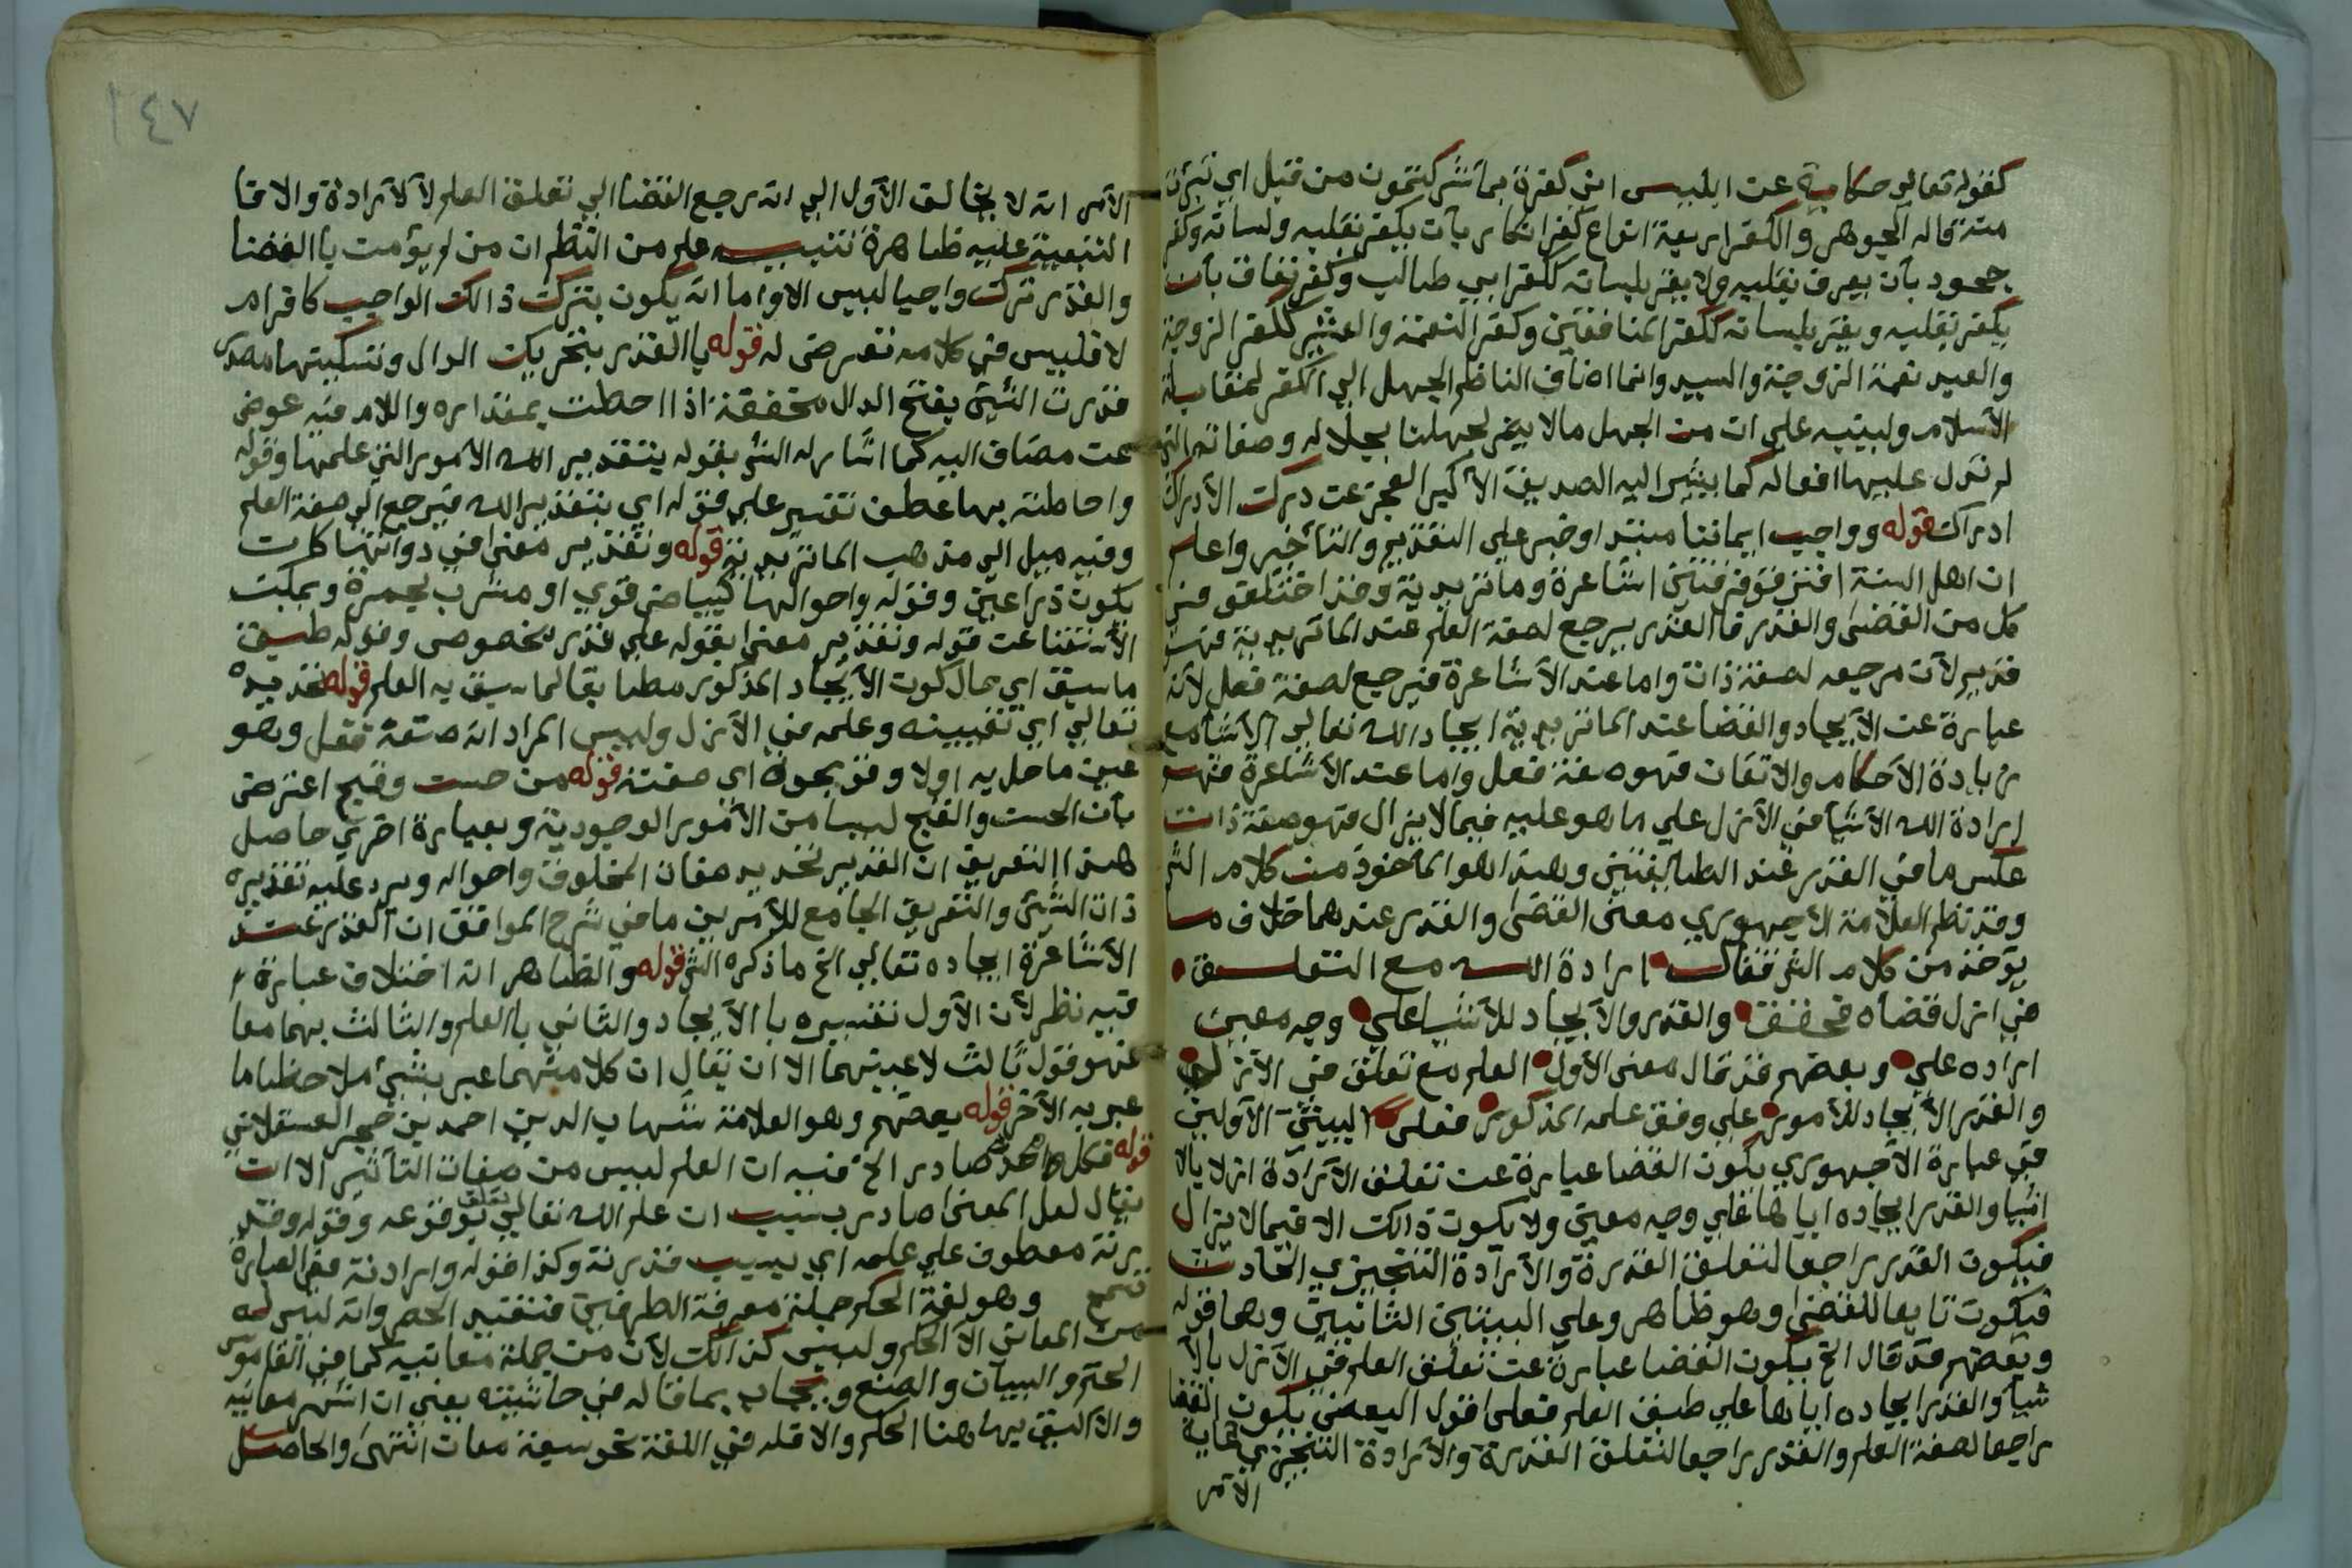 كقوله تعالى حكاية عن ابليس اني كفرت بما شركتمون من قبل اي تبرات
منه قاله الجوهر والكفر اربعة انواع كفر انكار بان يكفر بقلبه ولسانه وكفر
جحود بان يعرف بقلبه ولا يقر بلسانه ككفر ابي طالب وكفر نفاق بان
يكفر بقلبه ويقر بلسانه ككفر المنافقين وكفر النعمة والعشير ككفر الزوجة
والعبد نعمة الزوجية والسيد وانما اضاف الناظم الجهل الي الكفر لمقابلة
الاسلام ولينبه علي ان من الجهل مالا يضر لجهلنا بجلاله وصفاته التي
لم تدل عليها افعاله كما يشير اليه الصديق الاكبر العجز عن درك الادراك
ادراك قوله وواجب ايماننا مبتدا وخبر علي التقديم والتاخير واعلم
ان اهل السنة افترقو فرقتين اشاعرة وماتريدية وقد اختلفو في
كل من القضي والقدر فالقدر يرجع لصفة العلم عند الماتريدية فهو
قديم لان مرجعه لصفة ذات واما عند الاشاعرة فيرجع لصفة فعل لانه
عبارة عن الايجاد والقضا عند الماتريدية ايجاد الله تعالي الاشيا مع
زيادة الاحكام والاتقان فهو صفة فعل واما عند الاشاعرة فهو
ارادة الله الاشيا في الازل علي ما هو عليه فيما لا يزال فهو صفة ذات
عكس ما في القدر عند الطايفتين وهذا هو الماخوذ من كلام الش
وقد نظم العلامة الاجهوري معني القضي والقدر عندهما خلاف ما
يؤخذ من كلام الش فقال ارادة الله مع التعلق
في ازل قضاه فحقق والقدر والايجاد للاشيا علي وجه معين
اراده علي وبعضهم قد قال معني الاول العلم مع تعلق في الازل
والقدر الايجاد للامور علي وفق علمه المذكور فعلي البيتين الاولين
في عبارة الاجهوري يكون القضا عبارة عن تعلق الارادة ازلا بالا
اشيا والقدر ايجاده اياها علي وجه معين ولا يكون ذالك الا فيما لا يزال
فيكون القدر راجعا لتعلق القدرة والارادة التنجيزي الحادث
فيكون تابعا للقضي وهو ظاهر وعلي البيتين الثانيين وهما قوله
وبعضهم قد قال الخ يكون القضا عبارة عن تعلق العلم في الازل بالا
شيا والقدر ايجاده اياها علي طبق العلم فعلي قول البعض يكون القضا
راجعا لصفة العلم والقدر راجعا لتعلق القدرة والارادة التنجيزي غاية
الامر
١٤٧
الامر انه لا يخالف الاول الي انه يرجع القضا الي تعلق العلم لا لارادة والا فا
التبعية عليه ظاهرة تنبيه علم من النظم ان من لم يؤمن با القضا
والقدر ترك واجبا لبيس الاو اما انه يكون بترك ذالك الواجب كافرا م
لا فليس في كلامه تعرض له قوله با القدر بتحريك الدال وتسكينها مصدر
قدرت الشئ بفتح الدال مخففة اذا احطت بمقداره واللام فيه عوض
عن مضاف اليه كما اشار له الش بقوله بتقدير الله الامور التي علمها وقوله
واحاطته بها عطف تفسير علي قوله اي بتقدير الله فيرجع الي صفة العلم
وفيه ميل الي مذهب الماتريدية قوله وتقدير معني في ذواتها كان
يكون ذراعين وقوله واحوالها كبياض قوي او مشرب بحمرة ويمكن
الاستغنا عن قوله وتقدير معني بقوله علي قدر مخصوص وقوله طبق
ما سبق اي حال كون الايجاد المذكور مطابقا لما سبق به العلم قوله تحديده
تعالي اي تعيينه وعلمه في الازل وليس المراد انه صفة فعل وهو
عين ما حل به اولا وقوبحوه اي صفته قوله من حسن وقبح اعترض
بان الحسن والقبح ليسا من الامور الوجودية وبعبارة اخري حاصل
هذا التعريف ان القدير تحديد صفات المخلوق واحواله ويرد عليه تقديره
ذات الشئ والتعريف الجامع للامرين ما في شرح المواقف ان القدر عند
الاشاعرة ايجاده تعالي الخ ما ذكره الش قوله والظاهر انه اختلاف عبارة
فيه نظر لان الاول تفسيره با الايجاد والثاني با العلم والثالث بهما معا
فهو قول ثالث لاعينهما الا ان يقال ان كلا منهما عبر بشئ ملاحظا ما
عبر به الاخر قوله بعضهم وهو العلامة شهاب الدين احمد بن حجر العسقلاني
قوله فكل واحد صادر الخ فيه ان العلم ليس من صفات التاثير الا ان
يقال لعل المعني صادر بسبب ان علم الله تعالي تعلق بوقوعه وقوله وقد
رته معطوف علي علمه اي بسبب قدرته وكذا قوله وارادته ففي العبارة
تسمح وهو لغة الحكم جملة معرفة الطرفين فتفيد الحصر وانه ليس له
من المعاني الا الحكم وليس كذالك لان من جملة معانيه كما في القاموس
الحتم والبيان والصنع ويجاب بما قاله في حاشيته يعني ان اشهر معانيه
والاليق بها هنا الحكم والا فله في اللغة نحو سبعة معان انتهي والحاصل